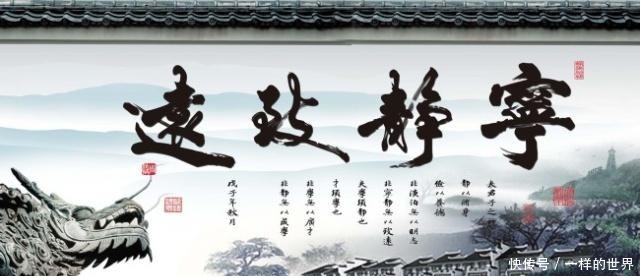 寧靜致遠
夫君子之行
靜以修身
儉以養德
非澹泊無以明志
非寧靜無以致遠
夫學須靜也
才須學也
非學無以廣才
非靜無以成學
戊子年秋月
快传号／一样的世界